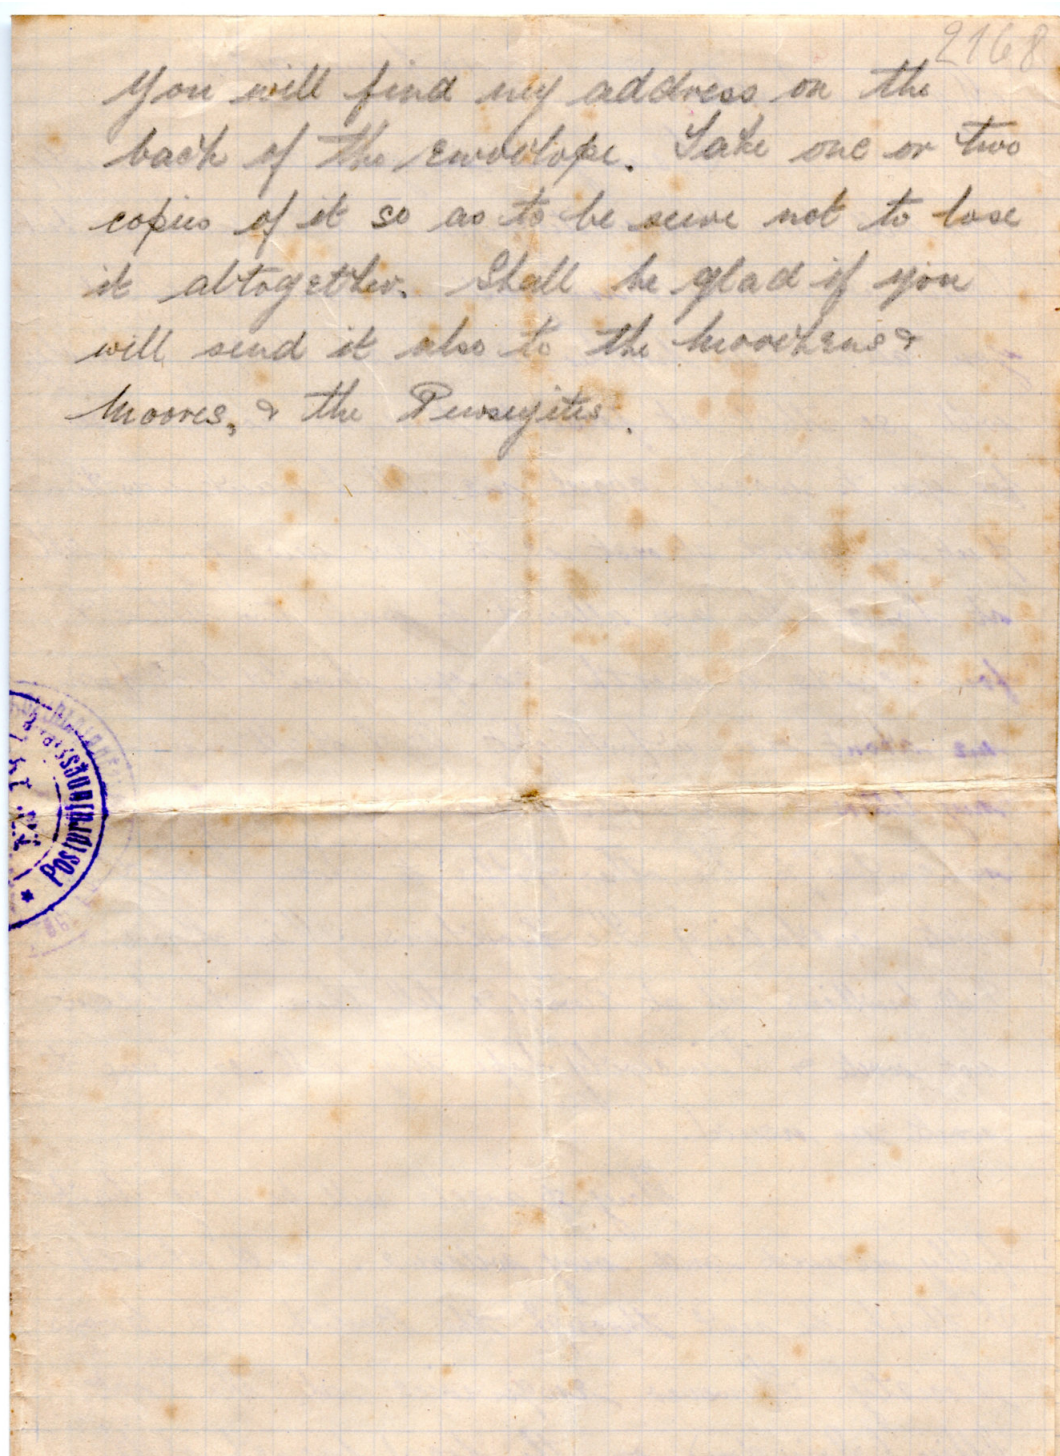 2168
You will find my address on the
back of the envelope. Take one or two
copies of it so as to be sure not to lose
it altogether. Shall be glad if you
will send it also to the &
Moores, & the
Postprüfungsst